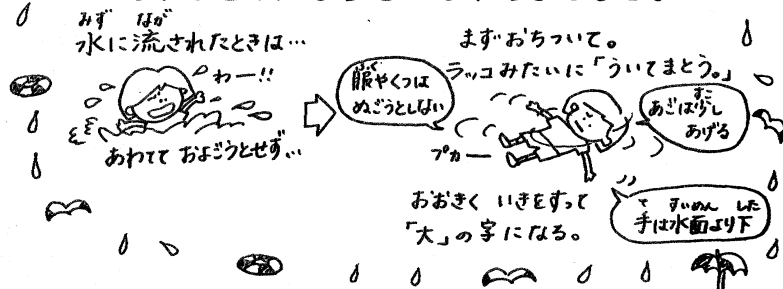 水に流されたときは…
わー!!
あわてて およごうとせず…
まずおちついて。
ラッコみたいに「ういてまとう。」
服やくつは
ぬごうとしない
あごは少し
あげる
プカー
おおきく いきをすって
「大」の字になる。
手は水面より下